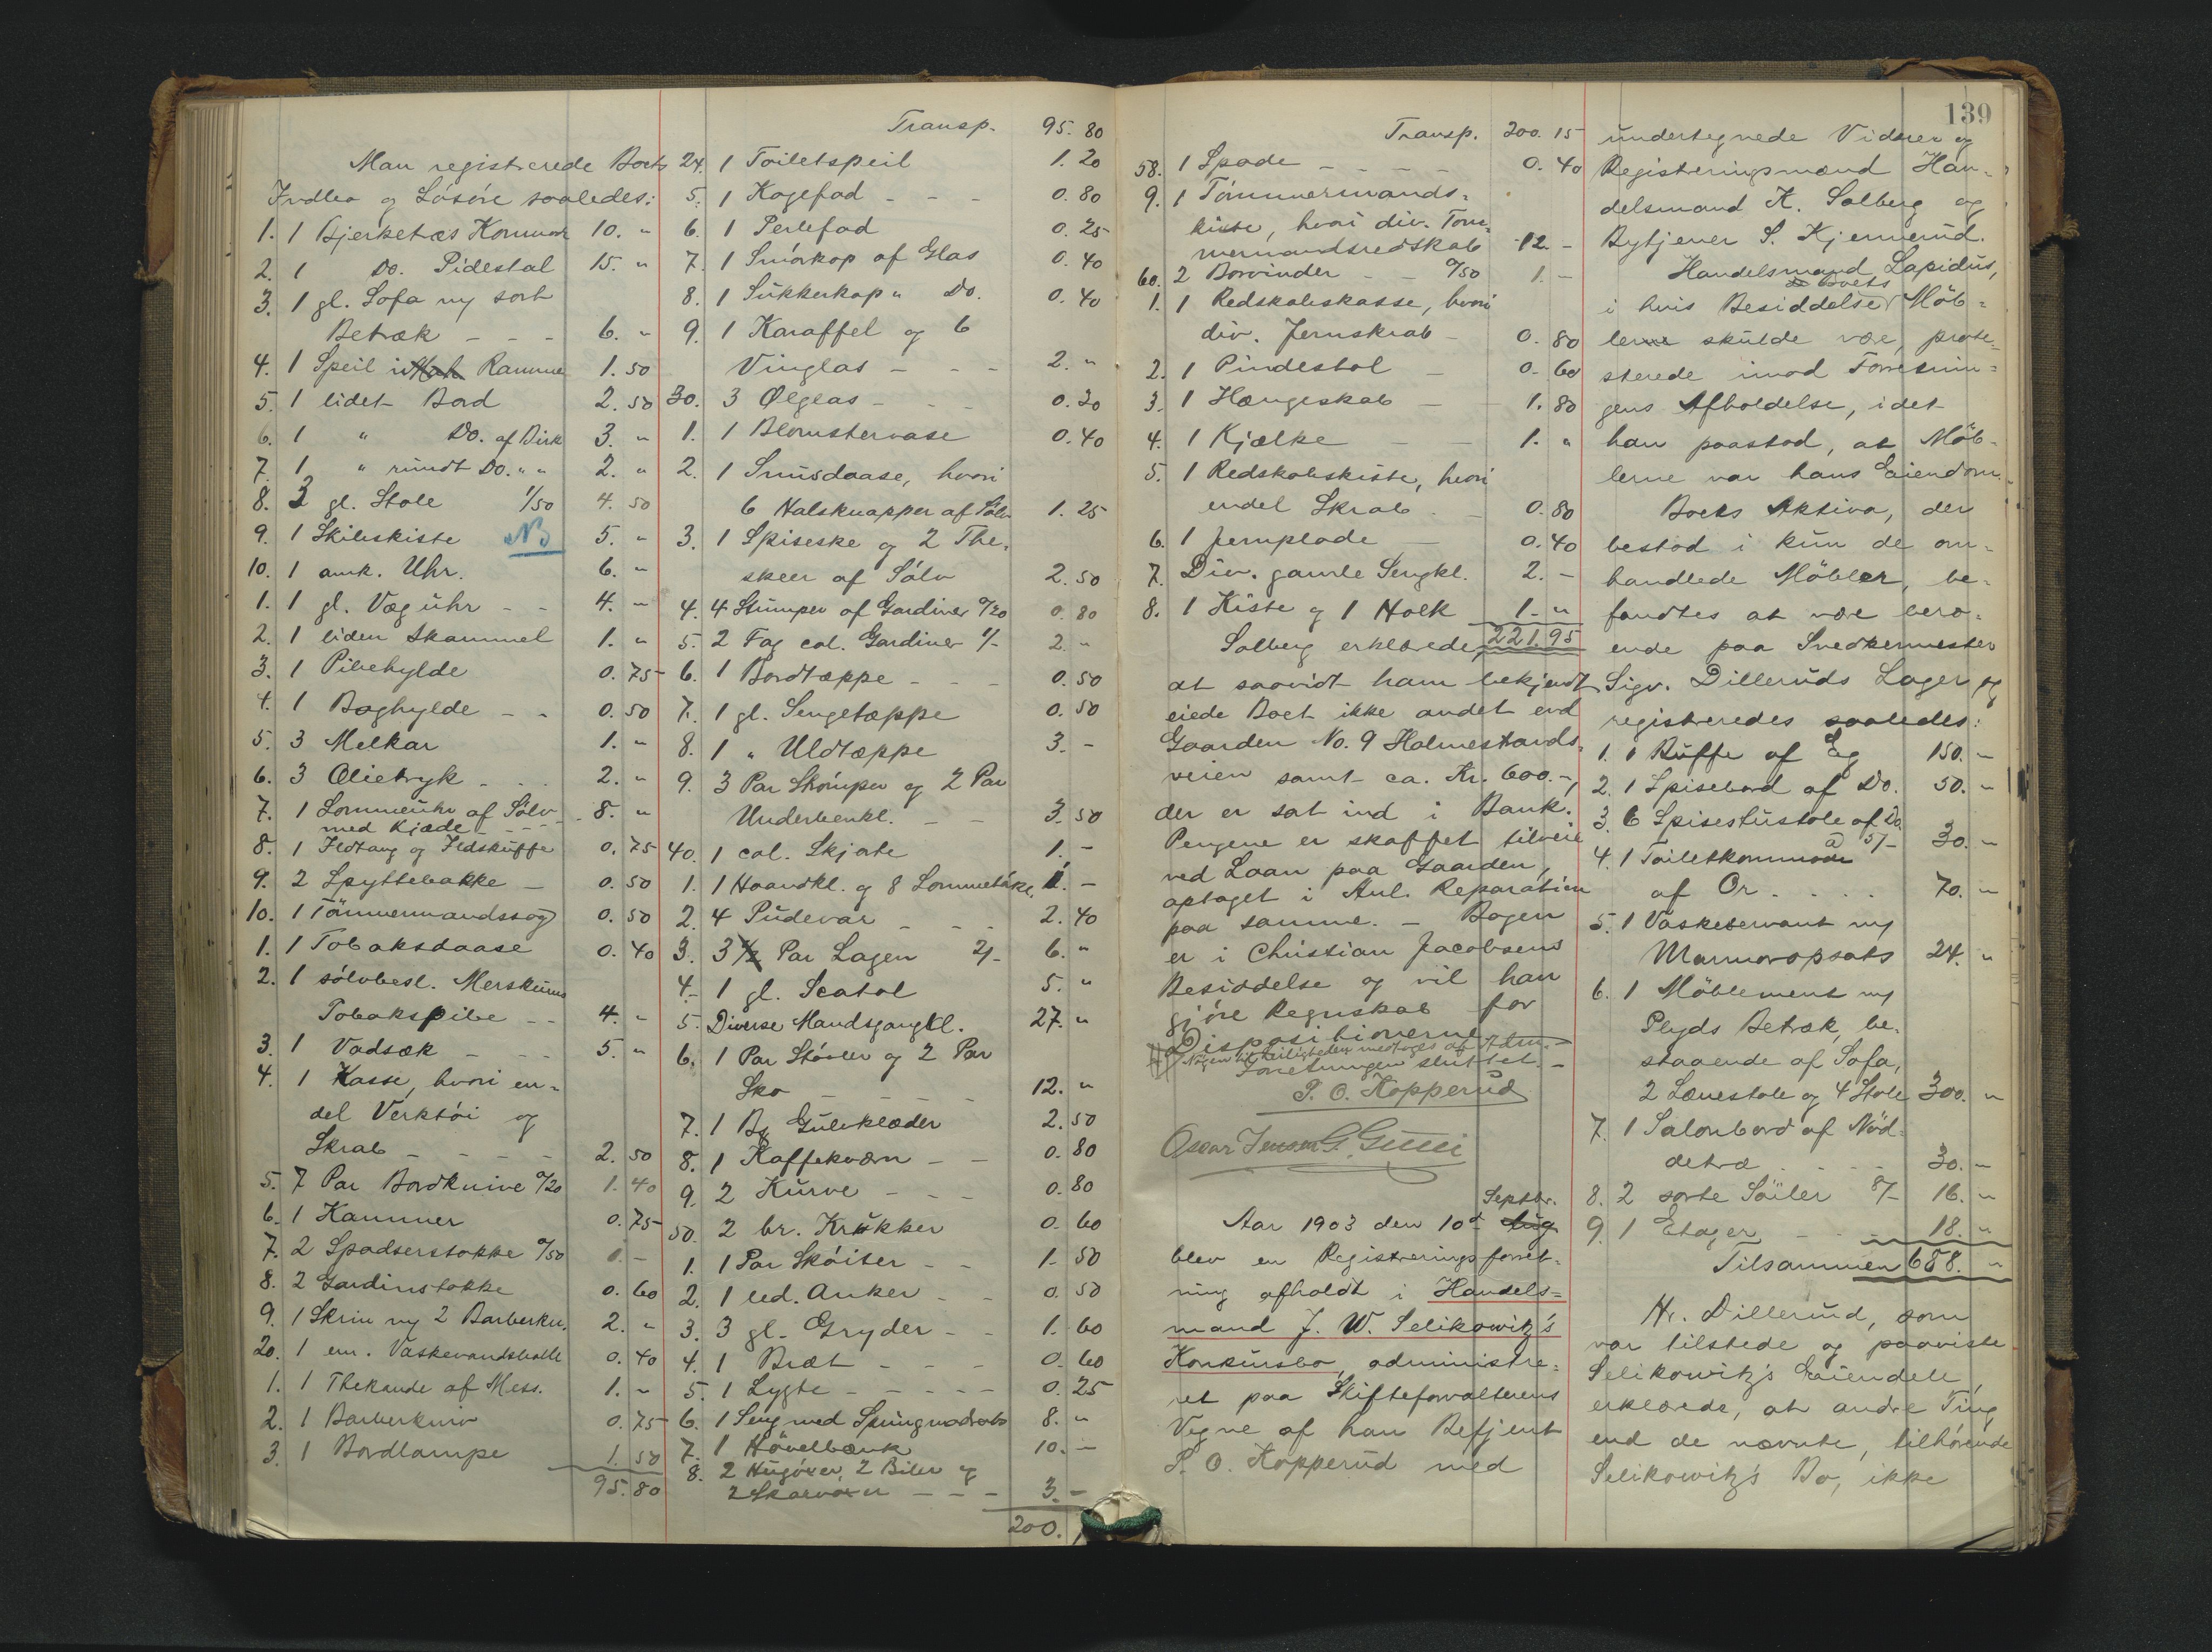 Man registrerede Boets
Indbo og Løsøre saaledes:
1. 1 Bjerketræs Kommode 10. "
2. 1 Do. Pidestal 15. "
3. 1 gl. Sofa m/ sort
Betræk - - - 6. "
4. 1 Speil i Ramme 1.50
5. 1 lidet Bord 2.50
6. 1 " Do. af Birk 3. "
7. 1 " rundt Do. " " 2. "
8. 3 gl. Stole 1/50 4.50
9. 1 Skibskiste NB 5. "
10. 1 amk. Uhr. 6. "
1. 1 gl. Væguhr - - 4. "
2. 1 liden Skammel 1. "
3. 1 Pibehylde 0.75
4. 1 Boghylde - - 0.50
5. 3 Melkar 1. "
6. 3 Olietryk - - - 2. "
7. 1 Lommeuhr af Sølv
med Kjæde - - - 8. "
8. 1 Ildtang og Ildskuffe 0.75
9. 2 Spyttebakke - 0.50
10. 1 Tømmermandssag 0.50
1. 1 Tobaksdaase 0.40
2. 1 sølvbesl. Merskums
Tobakspibe - - 4. "
3. 1 Vadsæk - - - 5. "
4. 1 Kasse, hvori en-
del Verktøi og
Skrab - - - - 2.50
5. 7 Par Bordknive 0/20 1.40
6. 1 Hammer 0.75
7. 2 Spadserstokke 0/50 1. -
8. 2 Gardinstokke 0.60
9. 1 Skrin m/ 2 Barberkn. 2. "
20. 1 em. Vaskevandsbolle 0.40
1. 1 Thekande af Mess. 1. "
2. 1 Barberkniv 0.75
3. 1 Bordlampe 1.50
95.80
Transp. 95.80
24. 1 Toiletspeil 1.20
5. 1 Kagefad - - - 0.80
6. 1 Perlefad 0.25
7. 1 Smørkop af Glas 0.40
8. 1 Sukkerkop " Do. 0.40
9. 1 Karaffel og 6
Vinglas - - - 2. "
30. 3 Ølglas - - - 0.20
1. 1 Blomstervase 0.40
2. 1 Snusdaase, hvori
6 Halsknapper af Sølv 1.25
3. 1 Spiseske og 2 The-
skeer af Sølv 2.50
4. 4 Stumper af Gardiner 0/20 0.80
5. 2 Fag col. Gardiner 1/- 2. "
6. 1 Bordtæppe - - - 0.50
7. 1 gl. Sengetæppe 0.50
8. 1 " Uldtæppe 3. -
9. 3 Par Strømper og 2 Par
Underbenkl. - - 3.50
40. 1 col. Skjorte 1. -
1. 1 Haandkl. og 8 Lommetükl. 1. -
2. 4 Pudevar - - - 2.40
3. 3 Par Lagen 2/- 6. "
4. 1 gl. Scatol 5. "
5. Diverse Mandsgangkl. 27. "
6. 1 Par Støvler og 2 Par
Sko - - - - 12. "
7. 1 Bg Gulvklæder 2.50
8. 1 Kaffekværn - - 0.80
9. 2 Kurve - - - 0.80
50. 2 br. Krukker 0.60
1. 1 Par Skøiter - - 1.50
2. 1 lid. Anker - - 0.50
3. 3 gl. Gryder - - 1.60
4. 1 Bræt - - - 0.60
5. 1 Lygte - - - - - 0.25
6. 1 Seng med Springmadrats 8. "
7. 1 Høvelbænk 10. -
8. 2 Hugøxer, 2 Biler og
2 Skarvøxer - - - 3. -
200.
139
Transp. 200.15
58. 1 Spade - - - - 0.40
9. 1 Tømmermands-
kiste, hvori div. Tøm-
mermandsredskab 12 -
60. 2 Borvinder - - 0/50 1. -
1. 1 Redskabskasse, hvori
div. Jernskrab - 0.80
2. 1 Pindestol - 0.60
3. 1 Hængeskab - - 1.80
4. 1 Kjælke - - 1. "
5. 1 Redskabskiste, hvori
endel Skrab - 0.80
6. 1 Jernplade - 0.40
7. Div. gamle Sengkl. 2. -
8. 1 Kiste og 1 Holk 1. "
Solberg erklærede, 221.95
at saavidt ham bekjendt
eiede Boet ikke andet end
Gaarden No. 9 Holmestrands-
veien samt ca. Kr. 600.-,
der er sat ind i Bank.
Pengene er skaffet tilveie
ved Laan paa Gaarden,
optaget i Anl. Reparation
paa samme. - Bogen
er i Christian Jacobsens
Besiddelse og vil han
gjøre Regnskab for
Dispositionerne.
Forretningen sluttet. -
P. O. Kopperud
Oscar Jensen G. Gulli
Septbr.
Aar 1903 den 10d Aug
blev en Registreringsforret-
ning afholdt i Handels-
mand J. W. Selikowitz's
Konkursbo, administre-
ret paa Skifteforvalterens
Vegne af han Betjent
P. O. Kopperud med
undertegnede Vidner og
Registreringsmænd Han-
delsmand K. Solberg og
Bytjener S. Kjernerud.
Handelsmand Lapidus,
i hvis Besiddelse Boets Møb-
lerne skulde være, prote-
sterede imod Forretnin-
gens Afholdelse, idet
han paastod, at Møb-
lerne var hans Eiendom.
Boets Aktiva, der
bestod i kun de om-
handlede Møbler, be-
fandtes at være bero-
ende paa Snedkermester
Sigv. Dilleruds Lager og
registreredes saaledes:
1. 1 Buffe af Eg 150. -
2. 1 Spisebord af Do. 50. -
3. 6 Spisestustole af Do.
a 5/- 30. -
4. 1 Toiletkommode
af Or . . . . 70. -
5. 1 Vaskeservant m/
Marmoropsats 24. "
6. 1 Møblement m/
Plyds Betræk, be-
staaende af Sofa,
2 Lænestole og 4 Stole 300. "
7. 1 Salonbord af Nød-
detræ - - - - 30. -
8. 2 sorte Søiler 8/- 16. "
9. 1 Etager - - - 18. "
Tilsammen 688. "
Hr. Dillerud, som
var tilstede og paaviste
Selikowitz's Eiendele,
erklærede, at andre Ting
end de nævnte, tilhørende
Selikowitz's Bo, ikke